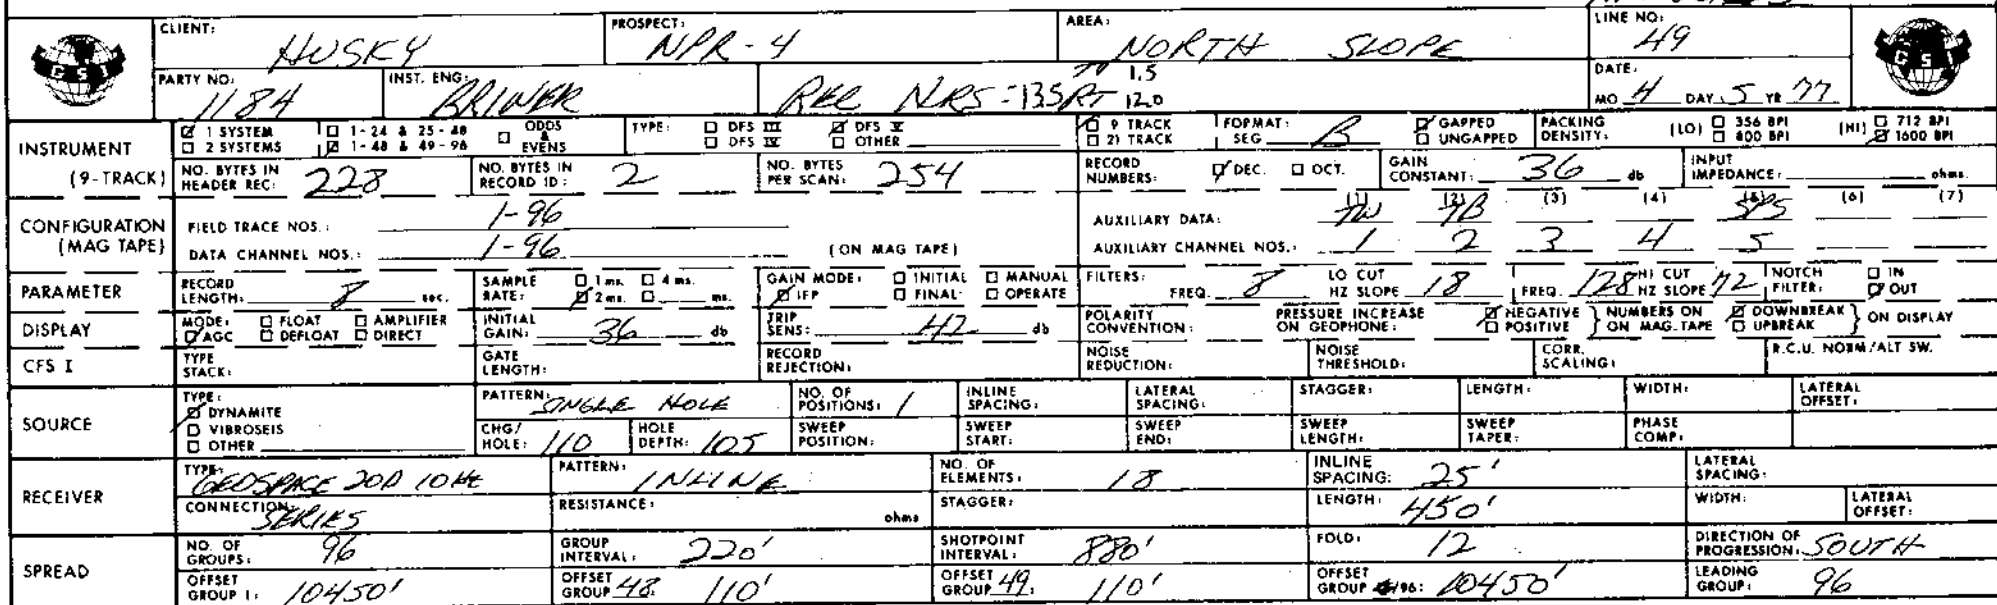 CLIENT: HUSKY PROSPECT: NPR-4 AREA: NORTH SLOPE LINE NO: 49
GSI
PARTY NO: 1184 INST. ENG: BRINER REC NRS-135RT TO 1.5 120 DATE: MO 4 DAY 5 YR 77
GSI
INSTRUMENT (9-TRACK)
1 SYSTEM 1-24 & 25-48 ODDS & EVENS TYPE: DFS III DFS V 9 TRACK FORMAT: GAPPED PACKING (LO) 356 BPI (HI) 712 BPI
2 SYSTEMS 1-48 & 49-96 DFS IV OTHER 21 TRACK SEG B UNGAPPED DENSITY: 800 BPI 1600 BPI
NO. BYTES IN HEADER REC: 228 NO. BYTES IN RECORD ID: 2 NO. BYTES PER SCAN: 254 RECORD NUMBERS: DEC. OCT. GAIN CONSTANT: 36 db INPUT IMPEDANCE: ohms.
CONFIGURATION (MAG TAPE)
FIELD TRACE NOS.: 1-96 AUXILIARY DATA: (1) TW (2) TB (3) (4) (5) SPS (6) (7)
DATA CHANNEL NOS.: 1-96 (ON MAG TAPE) AUXILIARY CHANNEL NOS.: 1 2 3 4 5
PARAMETER
RECORD LENGTH: 8 sec. SAMPLE RATE: 1 ms. 4 ms. 2 ms. ms. GAIN MODE: INITIAL MANUAL IFP FINAL OPERATE FILTERS: FREQ. 8 LO CUT HZ SLOPE 18 FREQ. 128 HI CUT HZ SLOPE 72 NOTCH FILTER: IN OUT
DISPLAY
MODE: FLOAT AMPLIFIER AGC DEFLOAT DIRECT INITIAL GAIN: 36 db TRIP SENS: 42 db POLARITY CONVENTION: PRESSURE INCREASE ON GEOPHONE: NEGATIVE POSITIVE } NUMBERS ON ON MAG. TAPE DOWNBREAK UPBREAK } ON DISPLAY
CFS I
TYPE STACK: GATE LENGTH: RECORD REJECTION: NOISE REDUCTION: NOISE THRESHOLD: CORR. SCALING: R.C.U. NORM/ALT SW.
SOURCE
TYPE: DYNAMITE VIBROSEIS OTHER
PATTERN: SINGLE HOLE NO. OF POSITIONS: 1 INLINE SPACING: LATERAL SPACING: STAGGER: LENGTH: WIDTH: LATERAL OFFSET:
CHG/HOLE: 110 HOLE DEPTH: 105 SWEEP POSITION: SWEEP START: SWEEP END: SWEEP LENGTH: SWEEP TAPER: PHASE COMP:
RECEIVER
TYPE: GEOSPACE 20D 10HZ PATTERN: INLINE NO. OF ELEMENTS: 18 INLINE SPACING: 25' LATERAL SPACING:
CONNECTION: SERIES RESISTANCE: ohms STAGGER: LENGTH: 450' WIDTH: LATERAL OFFSET:
SPREAD
NO. OF GROUPS: 96 GROUP INTERVAL: 220' SHOTPOINT INTERVAL: 880' FOLD: 12 DIRECTION OF PROGRESSION: SOUTH
OFFSET GROUP 1: 10450' OFFSET GROUP 48: 110' OFFSET GROUP 49: 110' OFFSET GROUP 96: 10450' LEADING GROUP: 96